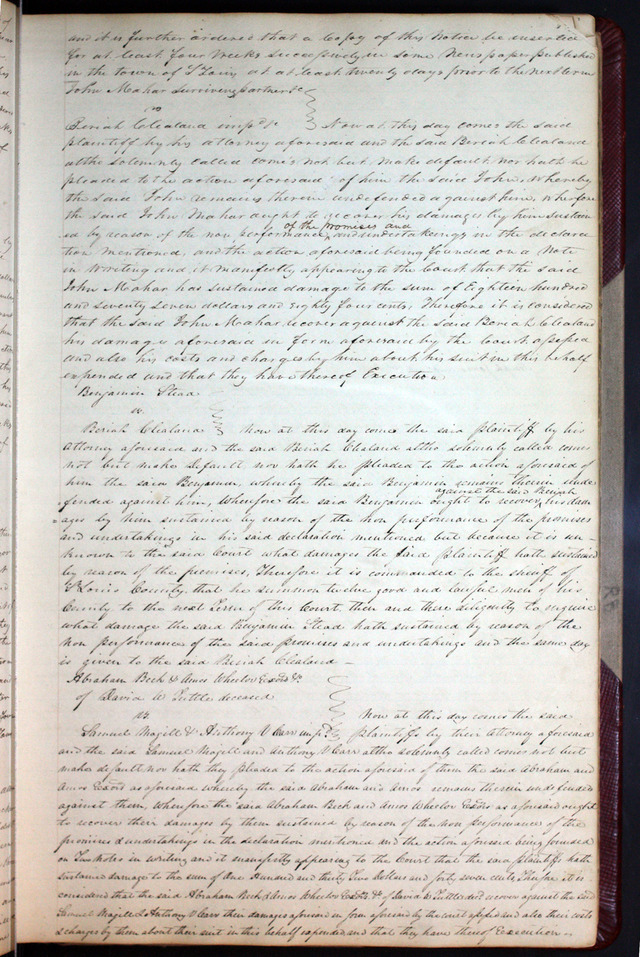 and it is further ordered that a Copy of this Notice be inserted
for at least four weeks successively in some News paper published
in the town of St Louis at at least twenty days prior to the next term
John Mahar surviving partner &c
vs
Beriah Clealand imp.d &c Now at this day comes the said
plaintiff by his attorney aforesaid and the said Beriah Clealand
altho solemnly called comes not but make default nor hath he
pleaded to the action aforesaid of him the said John, whereby
the said John remains therein undefended against him, Wherefore
the said John Mahar ought to recover his damages by him sustain
ed by reason of the non performance of the promises and undertakings in the declara
tion mentioned, and the action aforesaid being founded on a Note
in Writing and it manifestly appearing to the Court that the said
John Mahar has sustained damage to the sum of Eighteen hundred
and seventy seven dollars and Eighty four cents, Therefore it is considered
that the said John Mahar, recover against the said Beriah Clealand
his damages aforesaid in form aforesaid by the Court assessed
and also his costs and charges by him about his suit in this behalf
expended and that they have thereof Execution.
Benjamin Stead
vs.
Beriah Clealand Now at this day comes the said plaintiff by his
Attorney aforesaid and the said Beriah Clealand altho solemnly called comes
not but makes default nor hath he pleaded to the action aforesaid of
him the said Benjamin, whereby the said Benjamin remains therein unde
fended against him, Wherefore the said Benjamin ought to recover against the said Beriah his dam
=ages by him sustained by reason of the non performance of the promises
and undertakings in his said declaration mentioned but because it is un-
known to the said Court what damages the said plaintiff hath sustained
by reason of the premises, Therefore it is commanded to the sheriff of
St Louis County, that he summon twelve good and lawful men of his
County to the next term of this Court, then and there diligently to enquire
what damage the said Benjamin Stead hath sustained by reason of the
non performance of the said promises and undertakings and the same day
is given to the said Beriah Clealand —
Abraham Beck & Amos Wheeler Exors &c.
of David W Tuttle deceased
vs Now at this day comes the said
Samuel Magill & Anthony V Carr imp.d plaintiffs by their Attorney aforesaid
and the said Samuel Magill and Anthony V Carr altho solemnly called comes not but
makes default nor hath they pleaded to the action aforesaid of them the said Abraham and
Amos Exors as aforesaid whereby the said Abraham and Amos remains therein undefended
against them, Wherefore the said Abraham Beck and Amos Wheeler Exors as aforesaid ought
to recover their damages by them sustained by reason of the non performance of the
promises & undertakings in the declaration mentioned and the action aforesaid being founded
on in writing and it manifestly appearing to the Court that the said plaintiffs hath
sustained damage to the sum of One Hundred and thirty dollars and forty seven cents, Therefore it is
considered that the said Abraham Beck & Amos Wheeler Exors &c of David W Tuttle decd recover against the said
Samuel Magill & Anthony V Carr their damages aforesaid in form aforesaid by the court assessed and also their costs
& charges by them about their suit in this behalf expended and that they have thereof Execution —